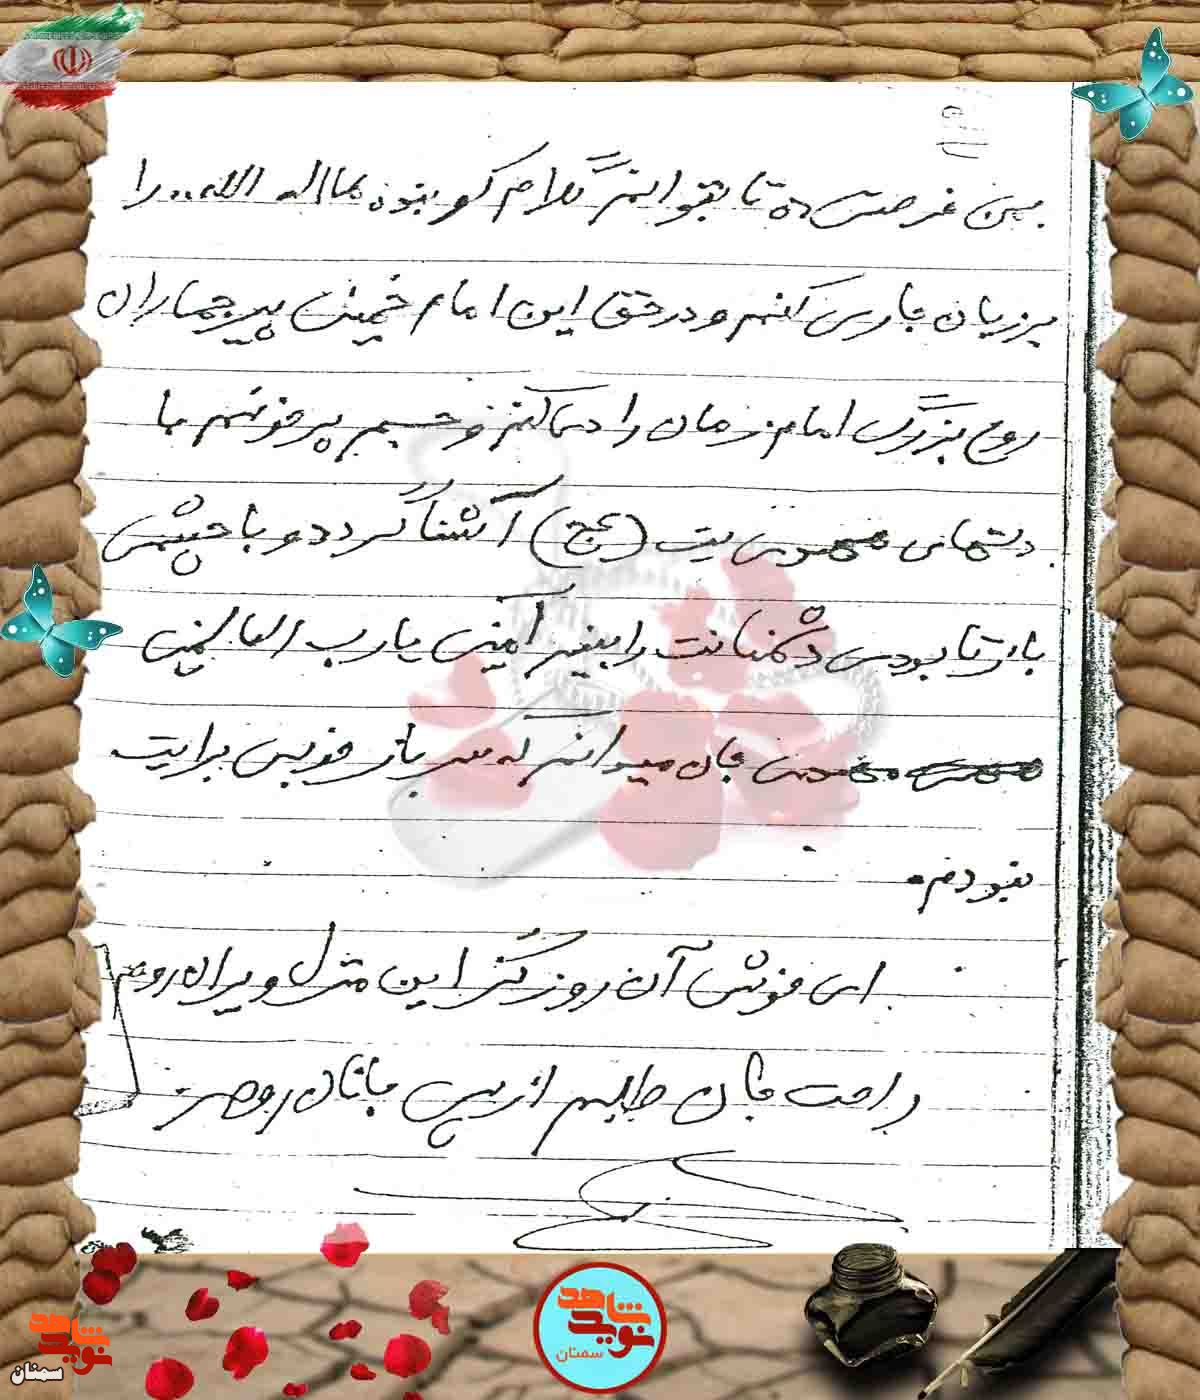 بمن فرصت ده تا بتوانم کلام کوبنده لااله الله.. را
بر زبان جاری کنم و در حق این امام خمینی پیر جماران
روح بزرگ امام زمان را دعا کنم و جسم پر خونم با
دستهای مهدیت (عج) آشنا گردد و با چشمی
باز نابودی دشمنانت را ببینم آمین یا رب العالمین
جان میدانم که سرباز خوبی برایت
نبودم.
ای خوش آن روز کز این منزل ویران روم
راحت جان طلبم از پی جانان روم
نوید شاهد
سمنان
نوید شاهد
سمنان